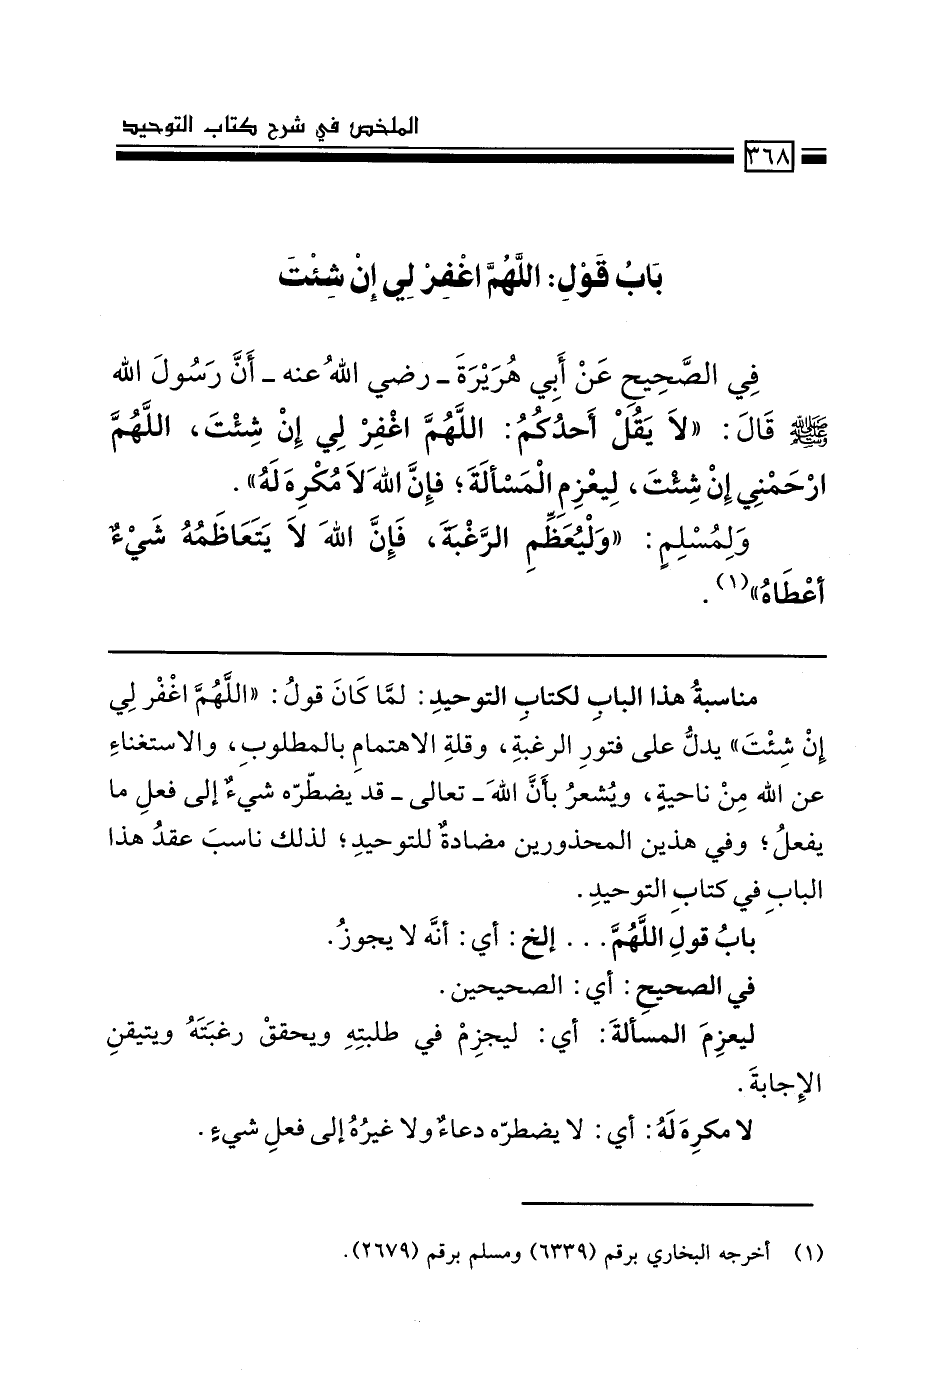 الملخص في شرح كتاب التوحيد
٣٦٨
بَابُ قَوْلِ: اللَّهُمَّ اغْفِرْ لِي إِنْ شِئْتَ
فِي الصَّحِيحِ عَنْ أَبِي هُرَيْرَةَ ـ رضي اللهُ عنه ـ أَنَّ رَسُولَ الله
ﷺ قَالَ: «لاَ يَقُلْ أَحدُكُمُ: اللَّهُمَّ اغْفِرْ لِي إِنْ شِئْتَ، اللَّهُمَّ
ارْحَمْنِي إِنْ شِئْتَ، لِيعْزِمِ الْمَسْأَلَةَ؛ فإِنَّ اللهَ لاَ مُكْرِهَ لَهُ».
وَلِمُسْلِمٍ: «وَلْيُعَظِّمِ الرَّغْبَةَ، فَإِنَّ اللهَ لاَ يَتَعَاظَمُهُ شَيْءٌ
أَعْطَاهُ»(١).
مناسبةُ هذا البابِ لكتابِ التوحيدِ: لمَّا كَانَ قولُ: «اللَّهُمَّ اغْفْر لِي
إِنْ شِئْتَ» يدلُّ على فتورِ الرغبةِ، وقلةِ الاهتمامِ بالمطلوبِ، والاستغناءِ
عن الله مِنْ ناحيةٍ، ويُشعرُ بأَنَّ اللهَ ـ تعالى ـ قد يضطّره شيءٌ إلى فعلِ ما
يفعلُ؛ وفي هذين المحذورين مضادةٌ للتوحيدِ؛ لذلك ناسبَ عقدُ هذا
البابِ في كتابِ التوحيدِ.
بابُ قولِ اللَّهُمَّ... إلخ: أي: أنَّه لا يجوزُ.
في الصحيحِ: أي: الصحيحين.
ليعزِمَ المسألةَ: أي: ليجزِمْ في طلبتِهِ ويحققْ رغبَتَهُ ويتيقنِ
الإِجابةَ.
لا مكرِهَ لَهُ: أي: لا يضطرّه دعاءٌ ولا غيرُهُ إلى فعلِ شيءٍ.
(١) أخرجه البخاري برقم (٦٣٣٩) ومسلم برقم (٢٦٧٩).